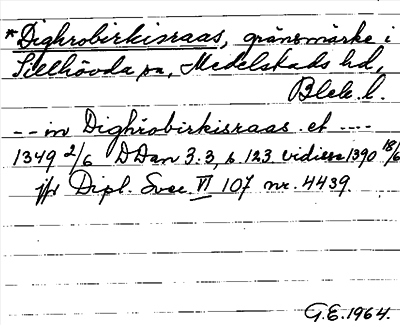 *Dighrobirkisraas, gränsmärke i
Sillhövda sn, Medelstads hd,
Blek. l.
-- in Dighrobirkisraas et ----
1349 2/6 DDan 3.3, s. 123 vidisse 1390 18/6
jfr Dipl. Svec. VI 107 nr. 4439.
G.E. 1964.